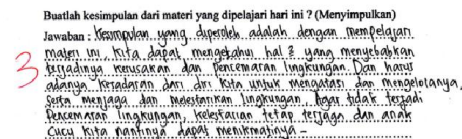 Buatlah kesimpulan dari materi yang dipelajari hari ini ? (Menyimpulkan)
Jawaban : Kesimpulan yang diperoleh adalah dengan mempelajari
materi ini, kita dapat mengetahui hal² yang menyebabkan
terjadinya kerusakan dan pencemaran lingkungan. Dan harus
adanya kesadaran dari diri kita untuk mengatasi dan mengelolanya,
serta menjaga dan melestarikan lingkungan. Agar tidak terjadi
Pencemaran lingkungan, kelestarian tetap terjaga dan anak
cucu kita nantinya dapat menikmatinya -
3